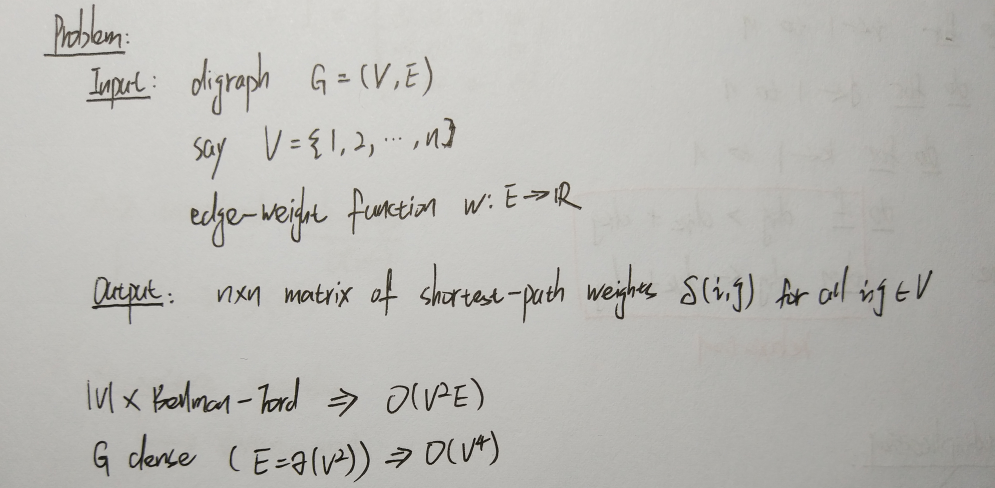 Problem:
Input: digraph G = (V, E)
say V = {1, 2, ..., n}
edge-weight function w: E → ℝ
Output: n×n matrix of shortest-path weights δ(i,j) for all i,j ∈ V
|V| × Bellman-Ford ⇒ O(V²E)
G dense (E = Θ(V²)) ⇒ O(V⁴)